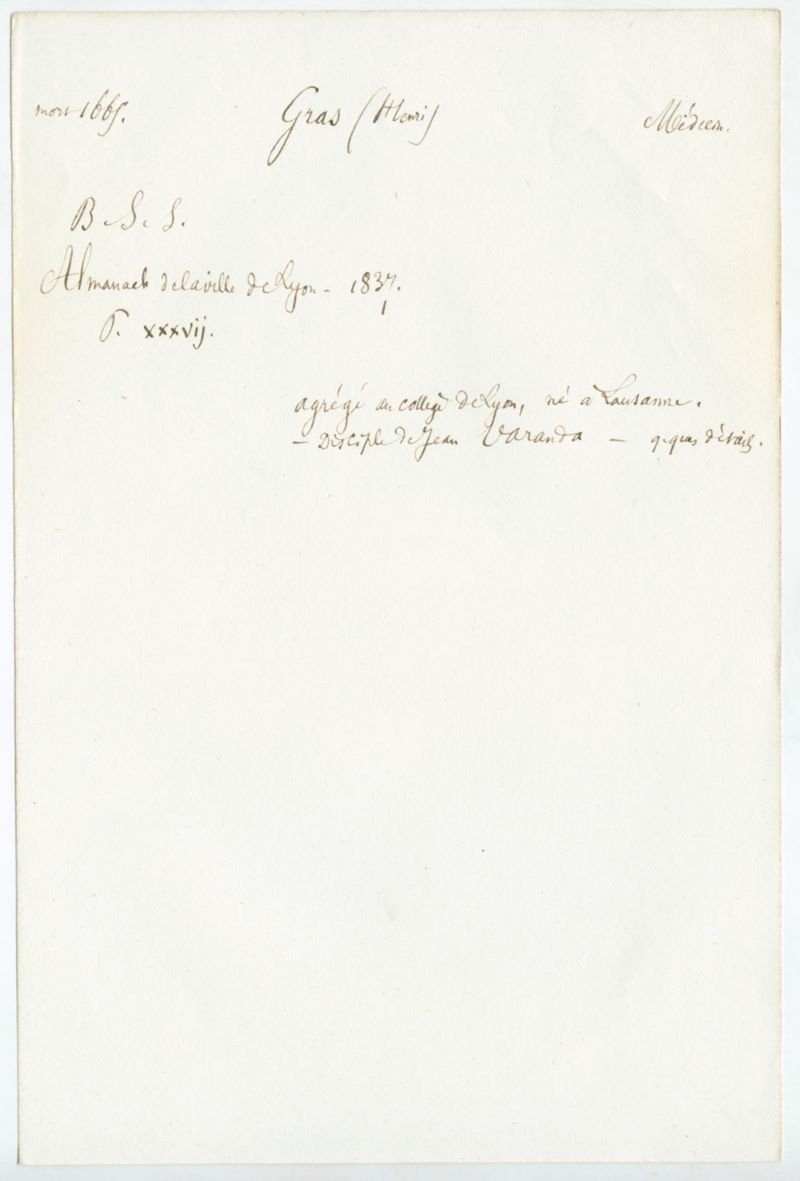 mort 1665. Gras (Henri) Médecin.
B. S. S.
Almanach de la ville de Lyon - 1837.
P. xxxvij.
agrégé au collège de Lyon, né à Lausanne.
- Disciple de Jean Varanda - q.ques détails.